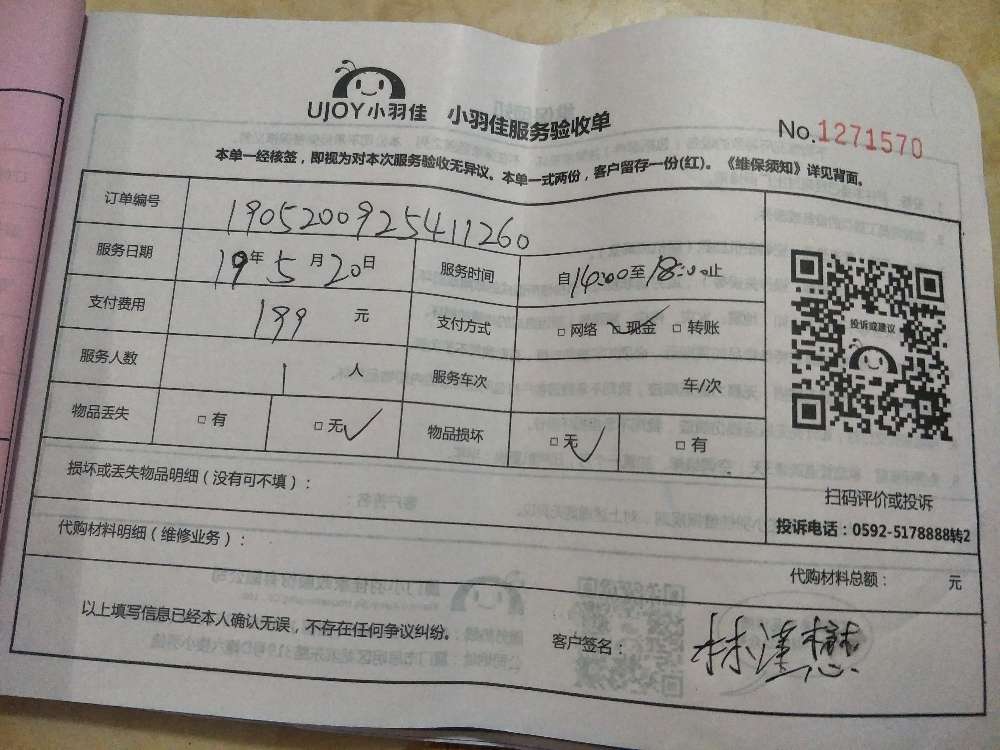 UJOY小羽佳 小羽佳服务验收单
No.1271570
本单一经核签，即视为对本次服务验收无异议。本单一式两份，客户留存一份(红)。《维保须知》详见背面。
订单编号 190520092541126​0
服务日期 19年5月20日 服务时间 自14:00至18:00止
支付费用 199 元 支付方式 □网络 □现金 □转账
服务人数 1 人 服务车次 车/次
物品丢失 □有 □无✓ 物品损坏 □无✓ □有
投诉或建议
扫码评价或投诉
投诉电话：0592-5178888转2
损坏或丢失物品明细（没有可不填）：
代购材料明细（维修业务）：
代购材料总额： 元
以上填写信息已经本人确认无误，不存在任何争议纠纷。
客户签名：